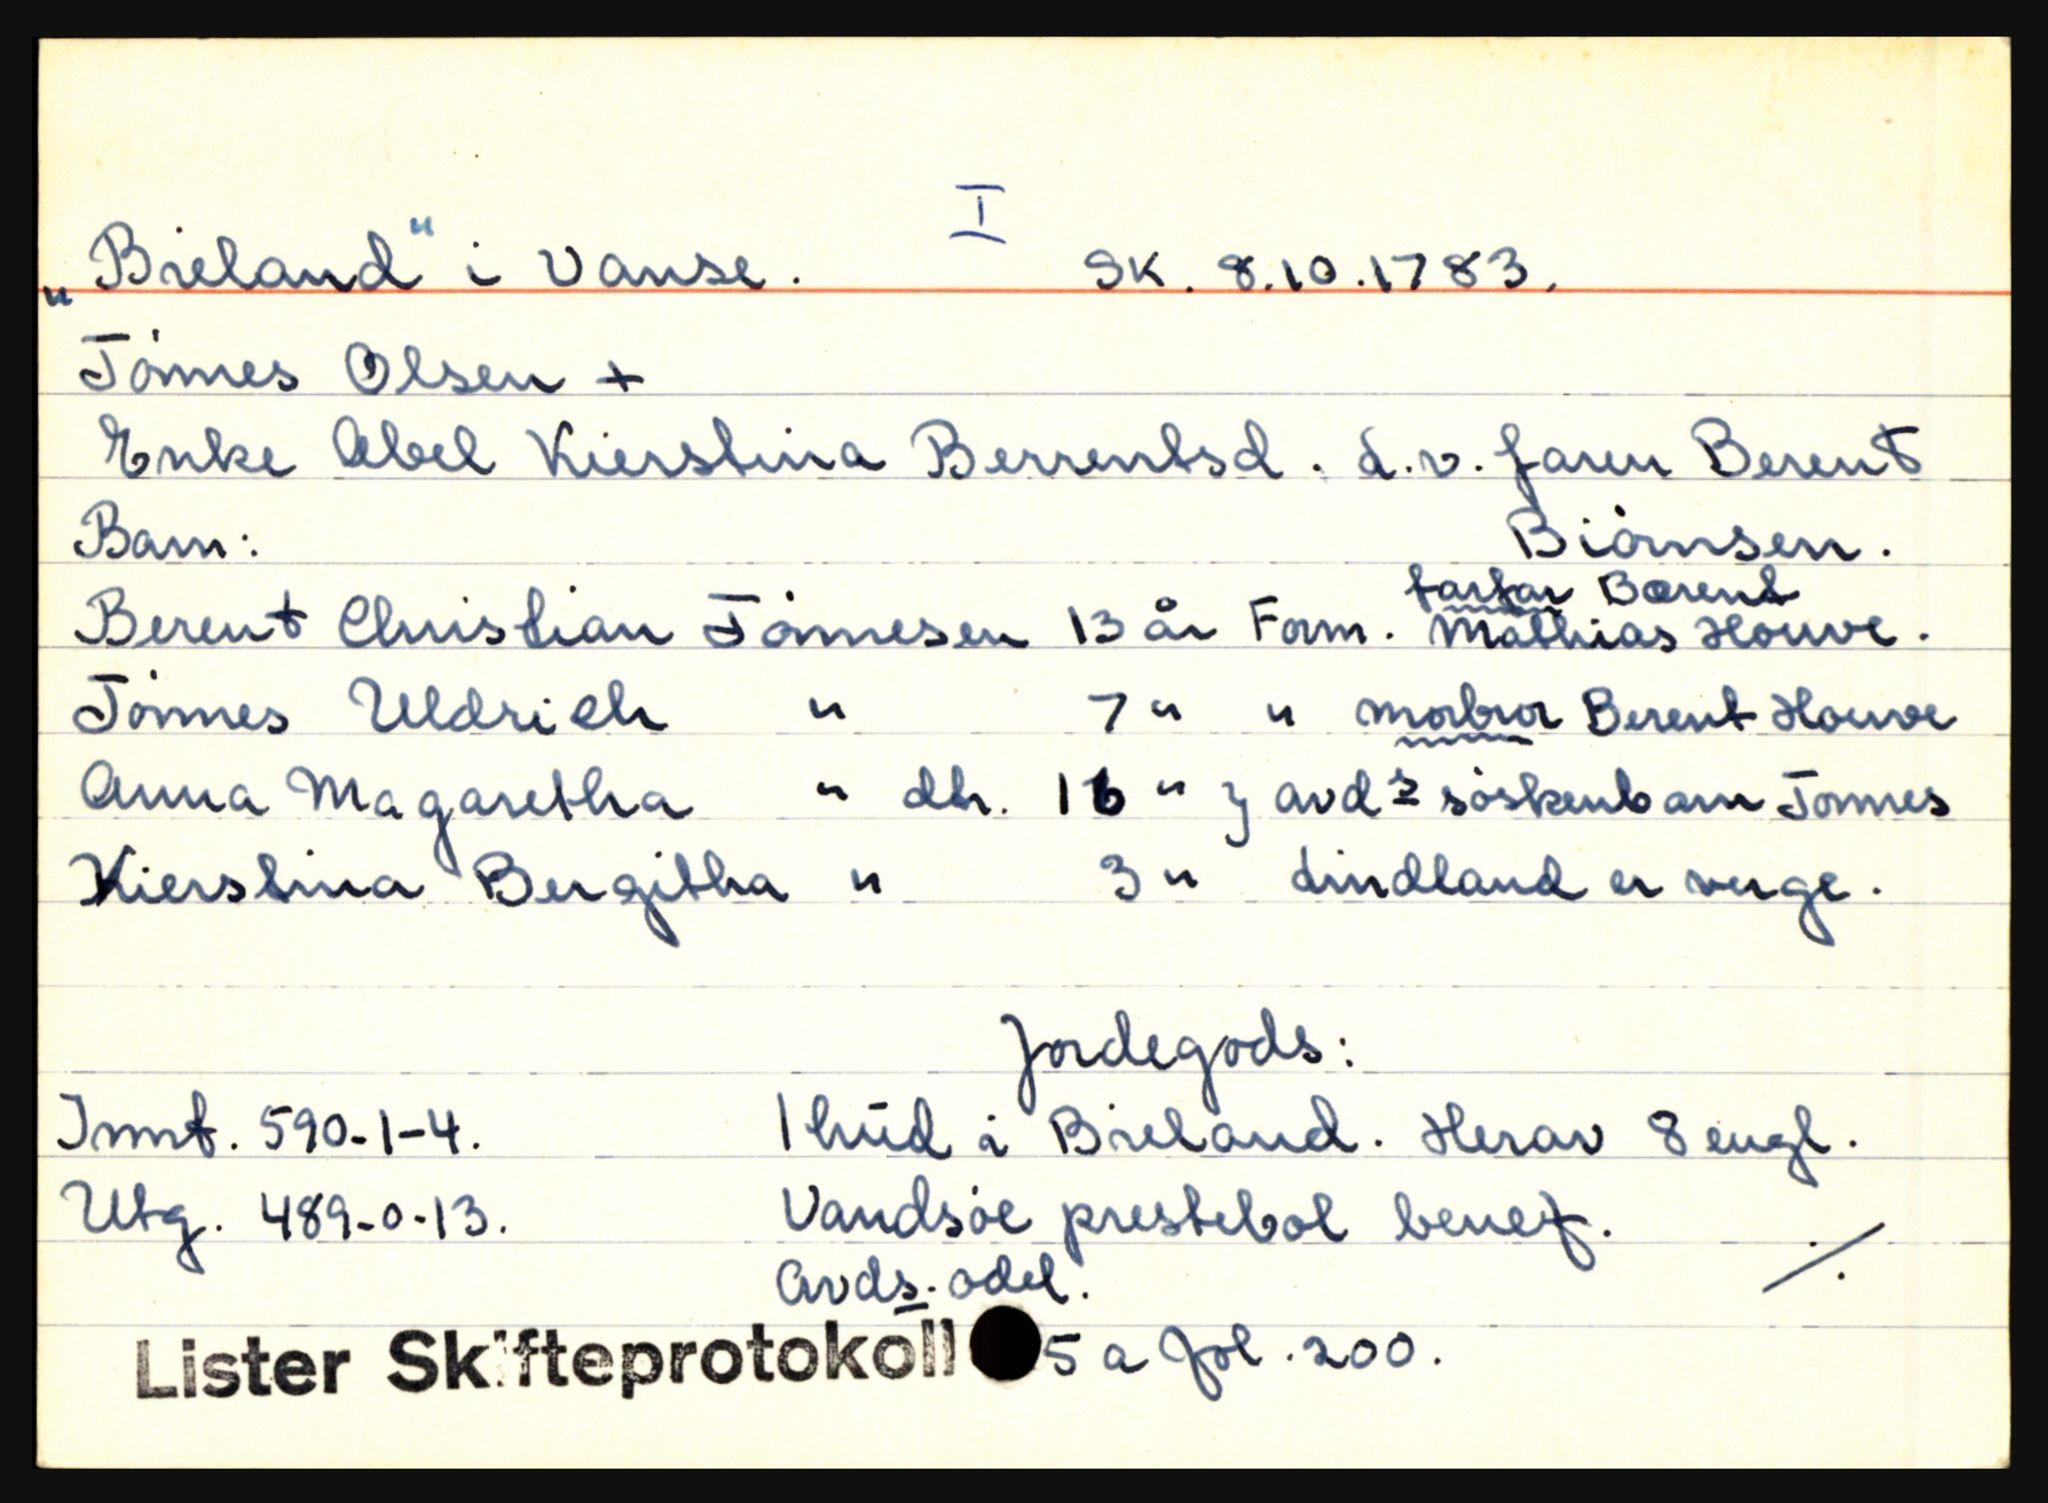 I
„Breland" i Vanse. SK. 8.10.1783.
Tönnes Olsen +
Enke Abel Kierstina Berrentsd. d.v. faren Berent
Barn: Biörnsen.
farfar Bærent
Berent Christian Tönnesen 13 år Form. Mathias Houve.
Tönnes Uldrich " 7 " " morbror Berent Houve
Anna Magaretha " dtr. 16 " } avds söskenbarn Tönnes
Kierstina Bergitha " 3 " Lindland er verge.
Jordegods:
Innt. 590-1-4. 1 hud i Breland. Herav 8 engl.
Utg. 489-0-13. Vandsöe prestebol benef.
Avds. odel. ./.
Lister Skifteprotokoll 5 a fol. 200.